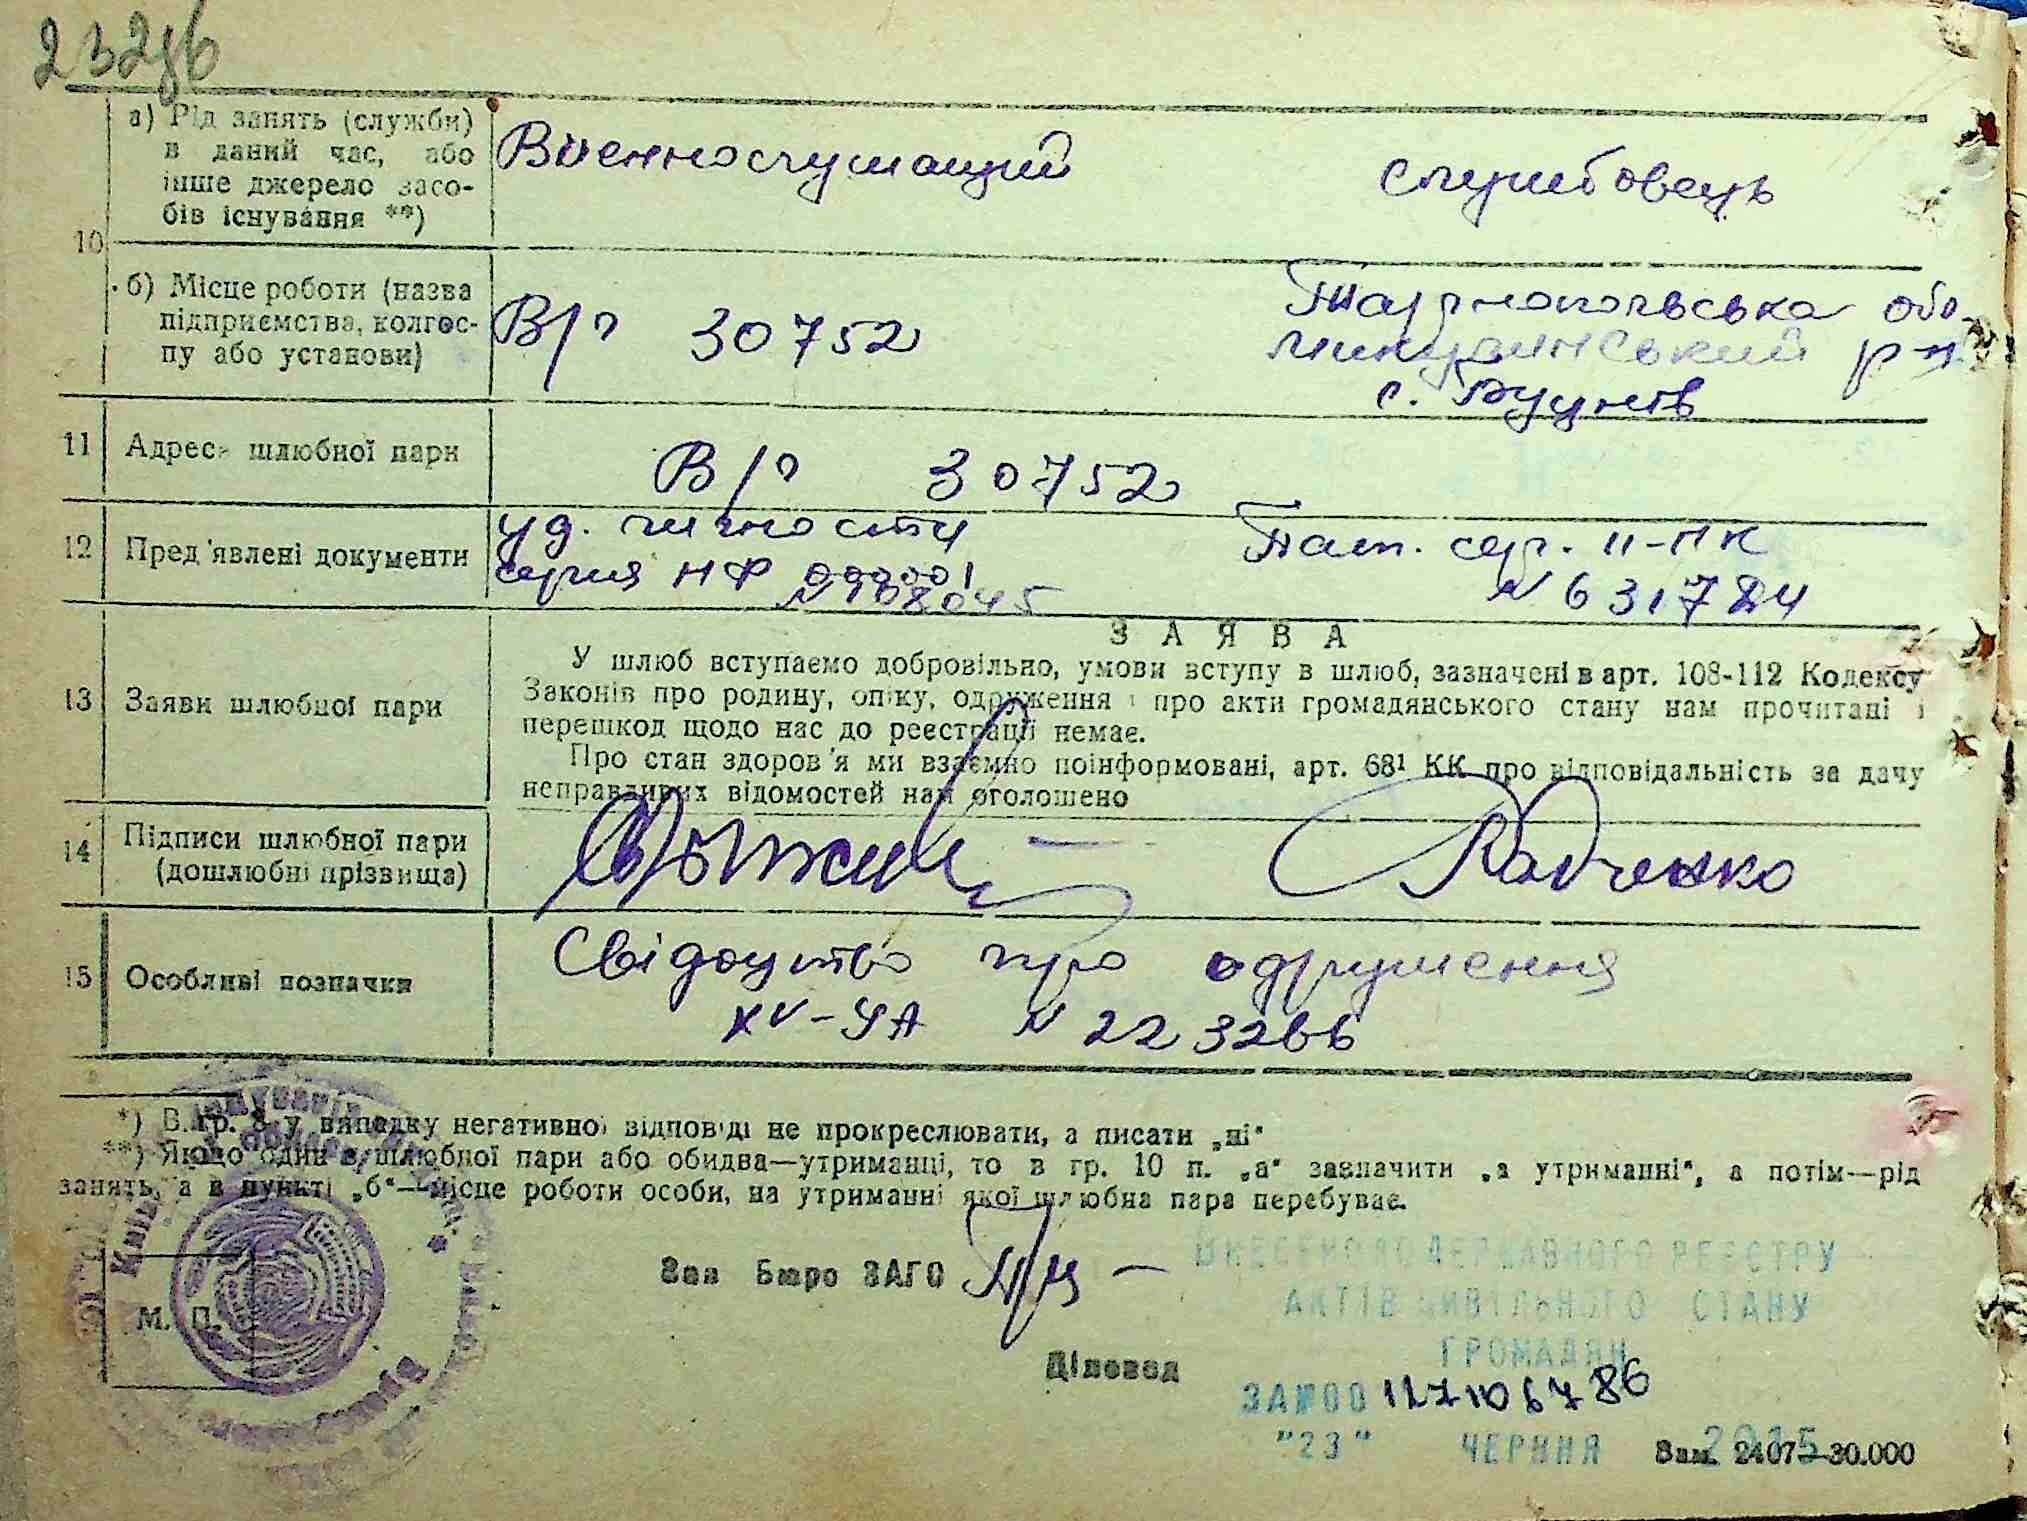 а) Рід занять (служби)
в даний час, або
інше джерело засо-
бів існування **)
Военнослужащий
службовець
10
б) Місце роботи (назва
підприємства, колгос-
пу або установи)
В/ч 30752
Тарнопольська обл.
Микулинський р-н
с.
11 Адреса шлюбної пари
В/ч 30752
12 Пред'явлені документи
уд. личности
серия НФ
Пасп. сер. II-ПК
N 631784
З А Я В А
13 Заяви шлюбної пари
У шлюб вступаємо добровільно, умови вступу в шлюб, зазначені в арт. 108-112 Кодексу
Законів про родину, опіку, одруження і про акти громадянського стану нам прочитані і
перешкод щодо нас до реєстрації немає.
Про стан здоров'я ми взаємно поінформовані, арт. 68¹ КК про відповідальність за дачу
неправдивих відомостей нам оголошено
14 Підписи шлюбної пари
(дошлюбні прізвища)
Радченко
15 Особливі позначки
Свідоцтво про одруження
XV-УА N 223266
*) В гр. 8 у випадку негативної відповіді не прокреслювати, а писати „ні“
**) Якщо один з шлюбної пари або обидва—утриманці, то в гр. 10 п. „а“ зазначити „а утриманні“, а потім—рід
занять, а в пункті „б“—місце роботи особи, на утриманні якої шлюбна пара перебуває.
Зав Бюро ЗАГО
М. П.
Діловод
ВНЕСЕНО ДО ДЕРЖАВНОГО РЕЄСТРУ
АКТІВ ЦИВІЛЬНОГО СТАНУ
ГРОМАДЯН
ЗА №00
"23" ЧЕРВНЯ 2015
Зам. 2407—30.000